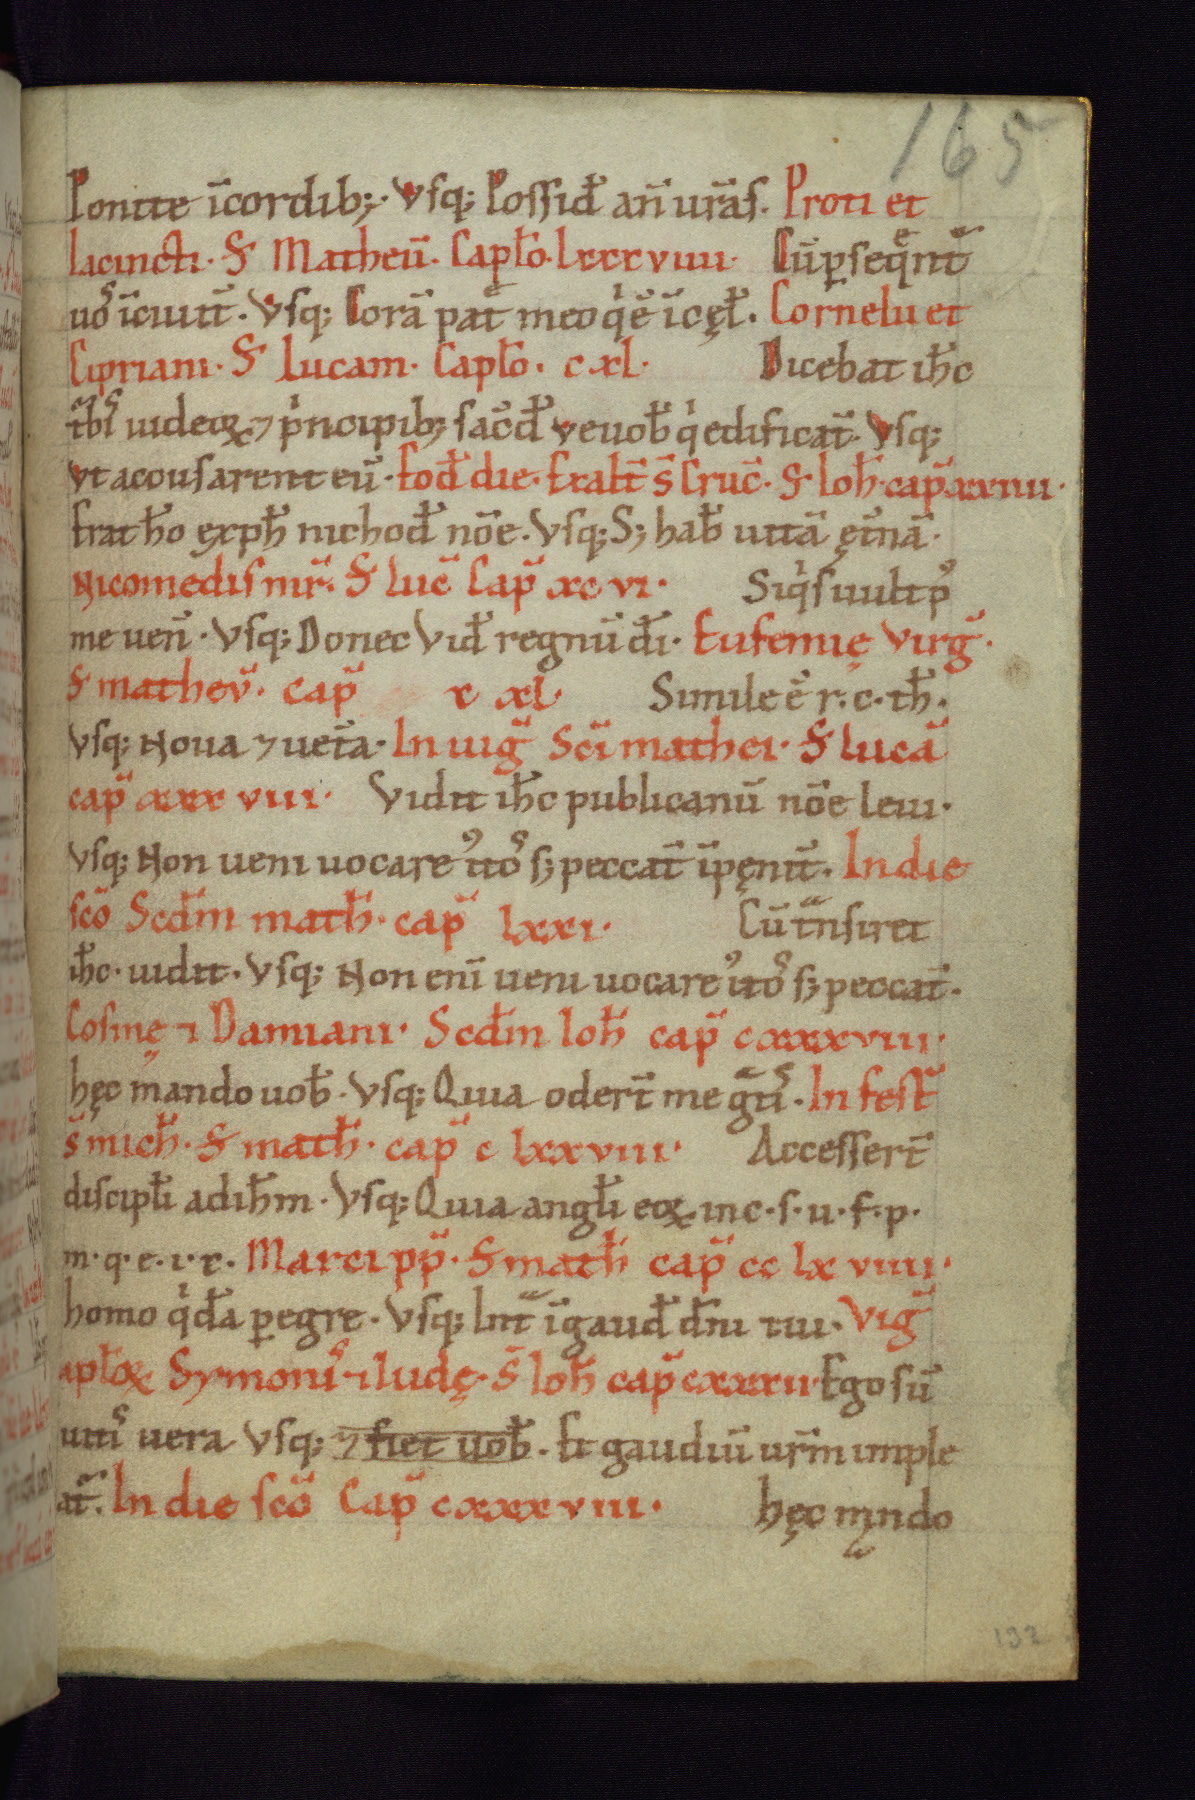 165
Ponite īcordib;· Vsq; Possid̄ an̄ ur̄as. Proti et
Iacincti· S̄ Matheū· Capl̄o· lxxxviiii· Cūp̱seqͤnt̄
uōs īciuit̄· Vsq; Corā pat̄ meo qͥē īcęl̄· Cornelii et
Cipriani· S̄ Lucam· Capl̄o· cxl· Dicebat ih̄c
t̄bis iudeoꝝ ⁊ pͥncipib; sac̄d̄ veuob̄ qͥ edificat̄· Vsq;
vt accusarent eū· Eod̄ die· Exalt̄ s̄ Cruc̄· S̄ Ioh̄· cap̄ xxiiii·
Erat ho ex ph̄ nichod̄ nōe· Vsq; S; hab̄ uitā ęt̄nā·
Nicomedis mr̄· S̄ Luc̄ Cap̄ xc vi· Siqͥs uult pꝰ
me uen̄· Vsq; Donec Vid̄ regnū d̄i· Eufemię Virḡ·
S̄ matheū· cap̄ c xl· Simile ē r· c· th̄·
Vsq; Noua ⁊ uet̄a· In uiḡ Sc̄i mathei· S̄ lucā
cap̄ xxxviii· Vidit ih̄c publicanū nōe leui·
Vsq; Non ueni uocare iꝰtōs s; peccat̄ īpęnit̄· In die
sc̄o Scd̄m math̄· cap̄ lxxi· Cū t̄nsiret
ih̄c· uidit· Vsq; Non enī ueni uocare iꝰtōs s; peccat̄·
Cosmę ⁊ Damiani· Scd̄m Ioh̄ cap̄ cxxxviii·
hęc mando uob̄· Vsq; Quia oder̄t me ḡtis· In fest̄
s̄ mich̄· S̄ math̄· cap̄ c lxxviii· Accesser̄t
discipl̄i adih̄m· Vsq; Quia angl̄i eoꝝ inc· s· u· f· p·
m· q· e· i· c· Marci pp̄· S̄ math̄ cap̄ cc lx viiii·
homo qͥd̄a ꝑegre· Vsq; Int̄ īgaud̄ d̄ni tui· Viḡ
apl̄oꝝ Symonis ⁊ Iudę· S̄ Ioh̄ cap̄ cxxxii· Ego sū
uitis uera Vsq; ⁊ fiet uob̄· Et gaudiū ur̄m imple
at̄· In die sc̄o Cap̄ cxxxviii· hęc mndo
132